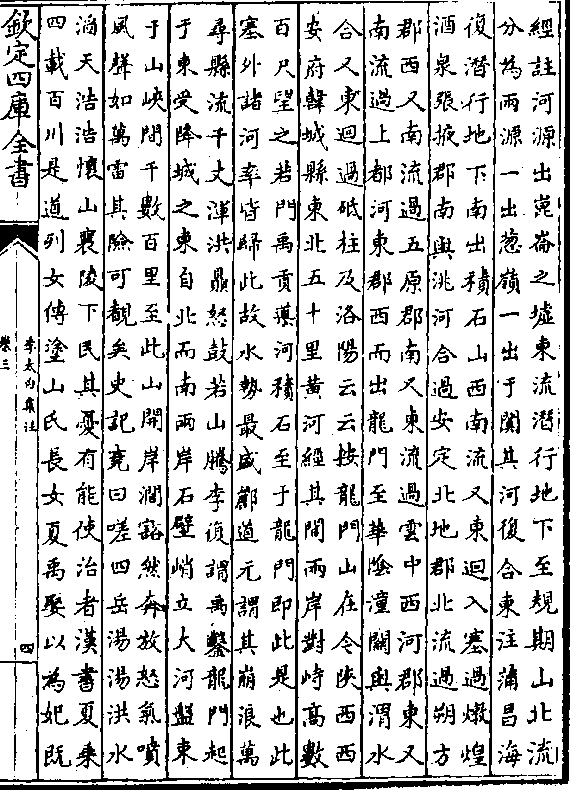 經註河源出崑崙之墟東流潛行地下至規期山北流
分為兩源一出蔥嶺一出于闐其河復合東注蒲昌海
復潛行地下南出積石山西南流又東迴入塞過燉煌
酒泉張掖郡南與洮河合過安定北地郡北流過朔方
郡西又南流過五原郡南又東流過雲中西河郡東又
南流過上都河東郡西而出龍門至華陰潼關與渭水
合又東迴過砥柱及洛陽云云按龍門山在今陝西西
安府韓城縣東北五十里黃河經其間兩岸對峙高數
百尺望之若門禹貢導河積石至于龍門即此是也此
塞外諸河率皆歸此故水勢最盛酈道元謂其崩浪萬
尋縣流千丈渾洪贔怒鼓若山騰李復謂禹鑿龍門起
于東受降城之東自北而南兩岸石壁峭立大河盤束
于山峽間千數百里至此山開岸濶豁然奔放怒氣噴
風聲如萬雷其險可覩矣史記堯曰嗟四岳湯湯洪水
滔天浩浩懷山襄陵下民其憂有能使治者漢書夏乘
四載百川是道列女傳塗山氏長女夏禹娶以為妃既
欽定四庫全書
李太白集注
卷三
四